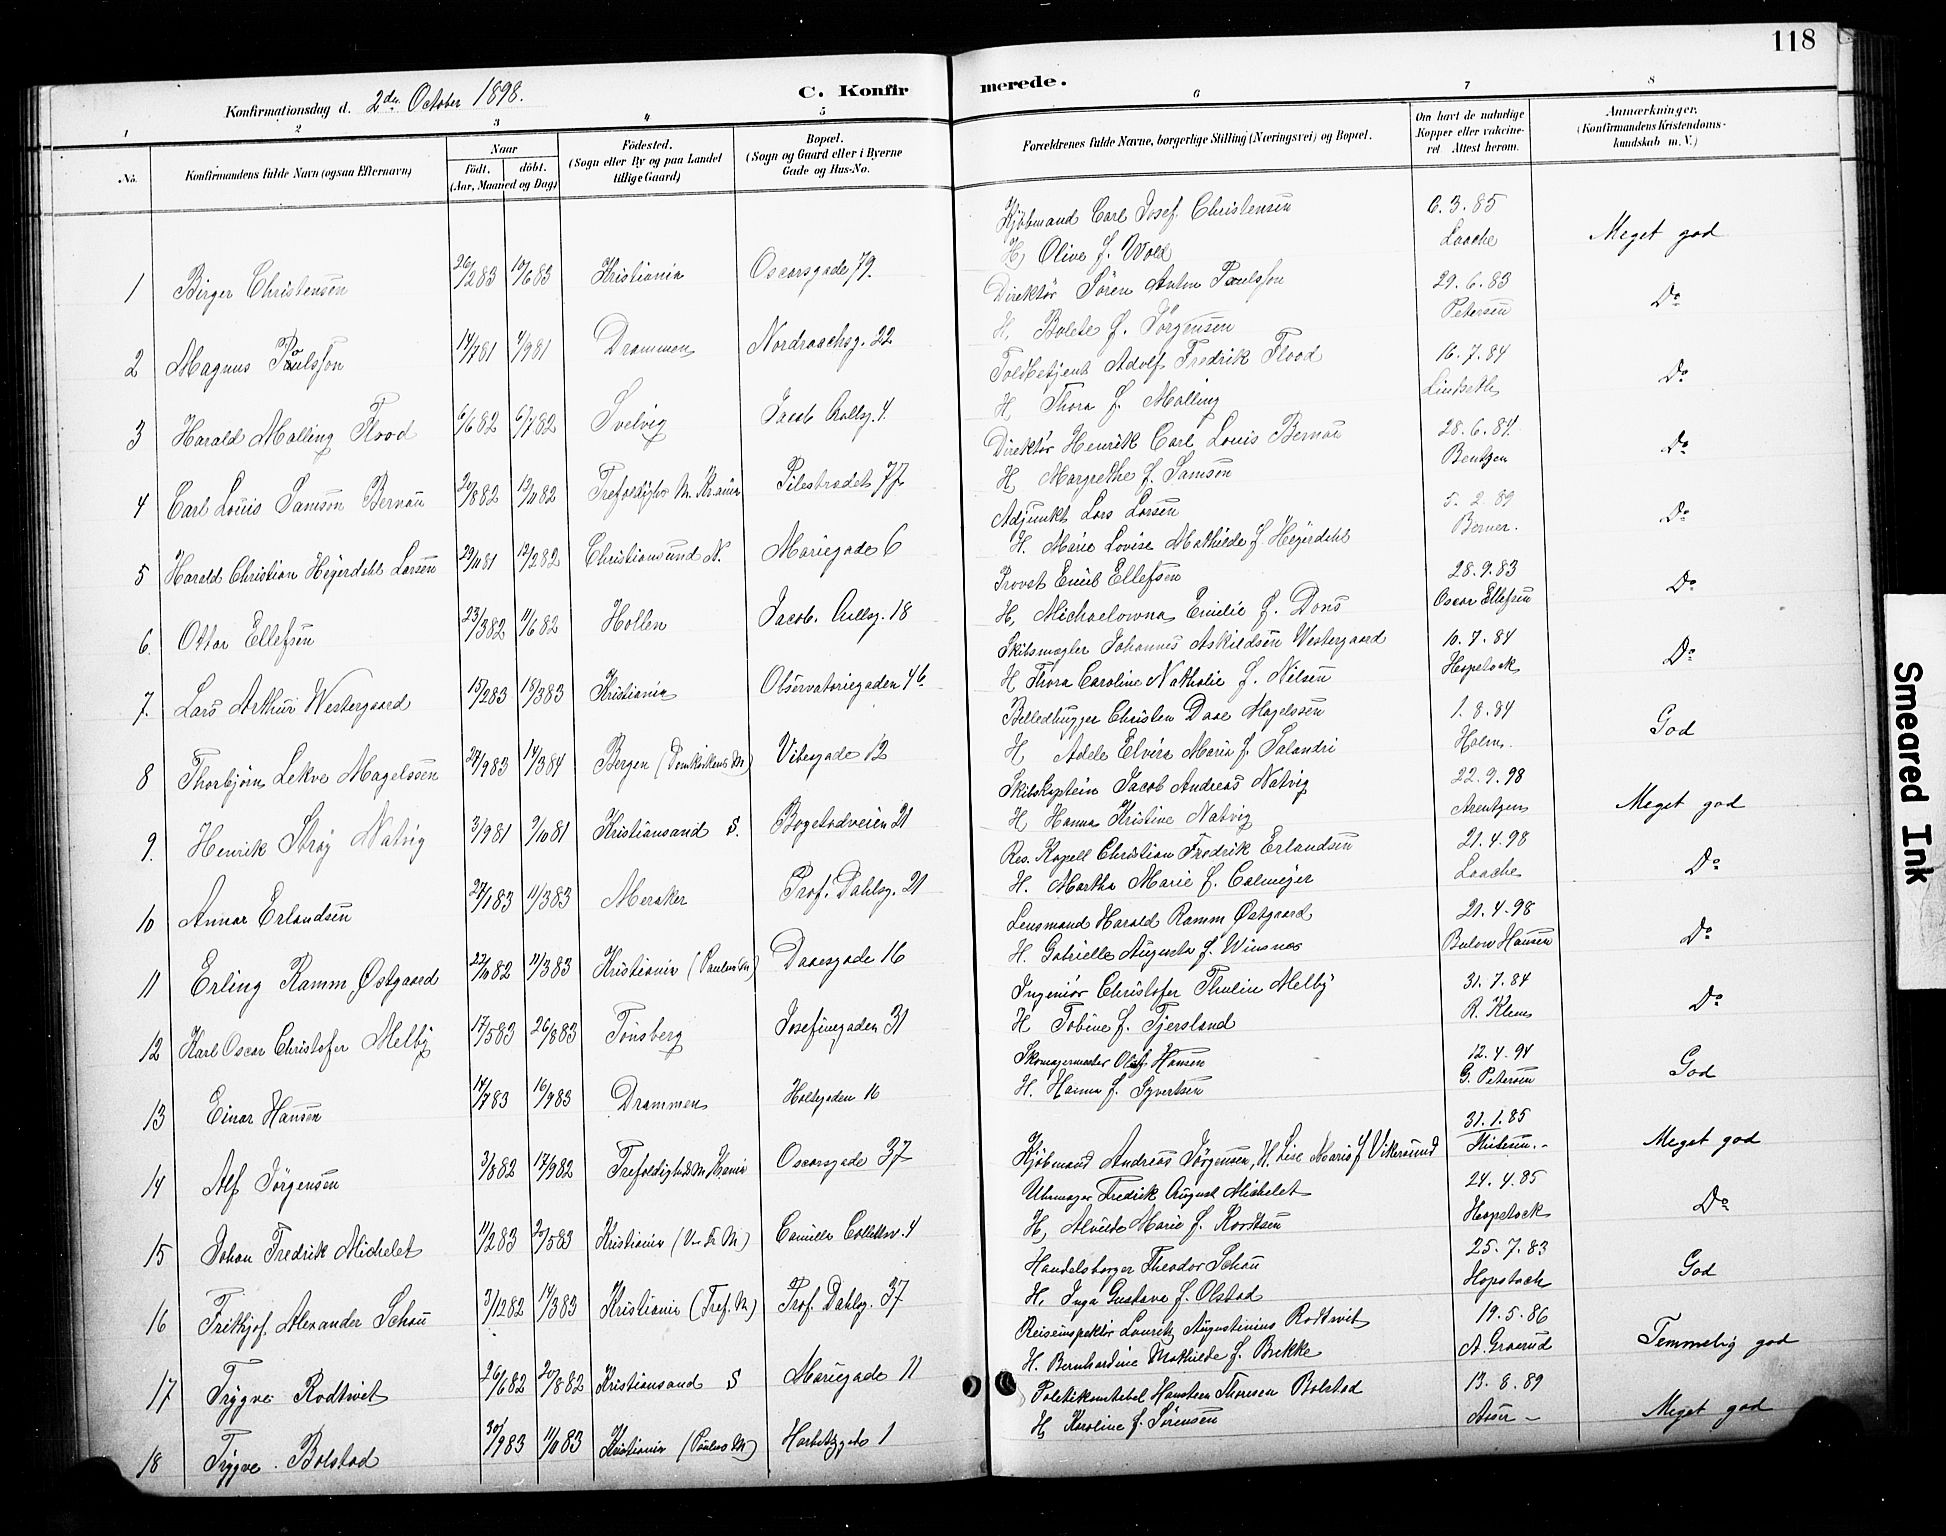 118
Konfirmationsdag d. 2den October 1898.
C. Konfirmerede.
1 2 3 4 5 6 7 8
No.
Konfirmandens fulde Navn (ogsaa Efternavn)
Naar
födt. döbt.
(Aar, Maaned og Dag)
Födested.
(Sogn eller By og paa Landet
tillige Gaard)
Bopæl.
(Sogn og Gaard eller i Byerne
Gade og Hus-No.
Forældrenes fulde Navne, borgerlige Stilling (Næringsvei) og Bopæl.
Om havt de naturlige
Kopper eller vakcine-
ret Attest herom.
Anmærkninger.
(Konfirmandens Kristendoms-
kundskab m. V.)
1 Birger Christensen 26/2 83 10/6 83 Kristiania Oscarsgade 79.
Kjöbmand Carl Josef Christensen 6.3.85
H, Olive f. Wold Laache Meget god
2 Magnus Paulsson 14/7 81 4/9 81 Drammen Nordraachsg. 22
Direktør Sören Anton Paulsson 29.6.83
H, Bolete f. Sörgensen Petersen Do
3 Harald Malling Flood 6/6 82 6/7 82 Svelvig Jacob Aallsg. 4.
Toldbetjent Adolf Fredrik Flood 16.7.84
H, Thora f. Malling Do
4 Carl Louis Samson Bernau 20/8 82 12/11 82 Trefoldighs M. Kr.ania Pilestrædet 77
Direktør Henrik Carl Louis Bernau 28.6.84
H, Margrethe f. Samson Bentzen Do
5 Harald Christian Hegerdahl Larsen 29/11 81 12/2 82 Christiansund N. Mariegade 6
Adjunkt Lars Larsen 5.2.89
H. Marie Lovise Mathilde f. Hegerdahl Berner. Do
6. Ottar Ellefsen 23/3 82 11/6 82 Hollen Jacob. Aallsg. 18
Provst Emil Ellefsen 28.9.83
H, Michaelowna Emilie f. Dons Oscar Ellefsen Do
7. Lars Arthur Westergaard 15/2 83 18/3 83 Kristiania Observatoriegaden 4b
Skibsmægler Johannes Askildsen Westergaard 16.7.84
H Thora Caroline Nathalie f. Nilsen Hopstock Do
8 Thorbjörn Lekve Magelssen 24/9 83 14/3 84 Bergen (Domkirkens M) Vibesgade 12
Billedhugger Christen Daae Magelssen 1.8.84
H Adele Elvira Maria f. Salandri Holm. God
9. Henrik Ströy Natvig 3/9 81 9/10 81 Kristiansand S. Bogstadveien 21
Skibskaptein Jacob Andreas Natvig 22.9.98
H, Hanna Kristine Natvig Arentzen Meget god
10 Annar Erlandsen 27/1 83 11/3 83 Meraker Prof. Dahlsg. 21
Res. Kapell Christian Fredrik Erlandsen 21.4.98
H. Martha Marie f. Calmeyer Laache Do
11 Erling Ramm Østgaard 22/11 82 11/3 83 Kristiania (Paulus M) Daaesgade 16
Lensmand Harald Ramm Østgaard 21.4.98
H. Gabrielle Augusta f. Winsnes Bulow Hansen Do
12 Karl Oscar Christofer Melby 17/5 83 26/8 83 Tönsberg Josefinegaden 31
Ingeniör Christofer Thulin Melby 31.7.84
H Tobine f. Tjersland R. Klem Do
13 Einar Hansen 14/7 83 16/9 83 Drammen Holtegaden 16
Skomagermester Oluf Hansen 12.4.94
H. Hanna f. Syvertsen G. Petersen God
14 Alf Jörgensen 3/8 82 17/9 82 Trefoldigheds M. Kr.ania Oscarsgade 37
31.1.85
Kjöbmand Andreas Jörgensen, H. Lise Marie f Vikersund Meget god
15 Johan Fredrik Michelet 11/2 83 20/5 83 Kristiania (V Fr M) Camilla Collettsv. 4
Uhrmager Fredrik August Michelet 24.4.85
H, Alvilde Marie f. Kordtsen Hopstock Do
16 Frithjof. Alexander Schou 3/12 82 14/3 83 Kristiania (Tref. M) Prof. Dahlsg. 37
Handelsborger Theodor Schou 25.7.83
H, Inga Gustava f. Olstad Hopstock God
17 Trygve Rodtwit 26/6 82 20/8 82 Kristiansand S Mariegade 11
Reiseinspektör Lauritz Augustinius Rodtwit 19.5.86
H. Bernhardine Mathilde f. Bakke A. Graarud Temmelig god
18 Trygve Bolstad 30/9 83 11/11 83 Kristiania (Paulus M) Harbitzgade 1
Politikonstabel Hansteen Thoresen Bolstad 13.8.89
H, Karoline f. Sörensen Aaser - Meget god
Smeared Ink